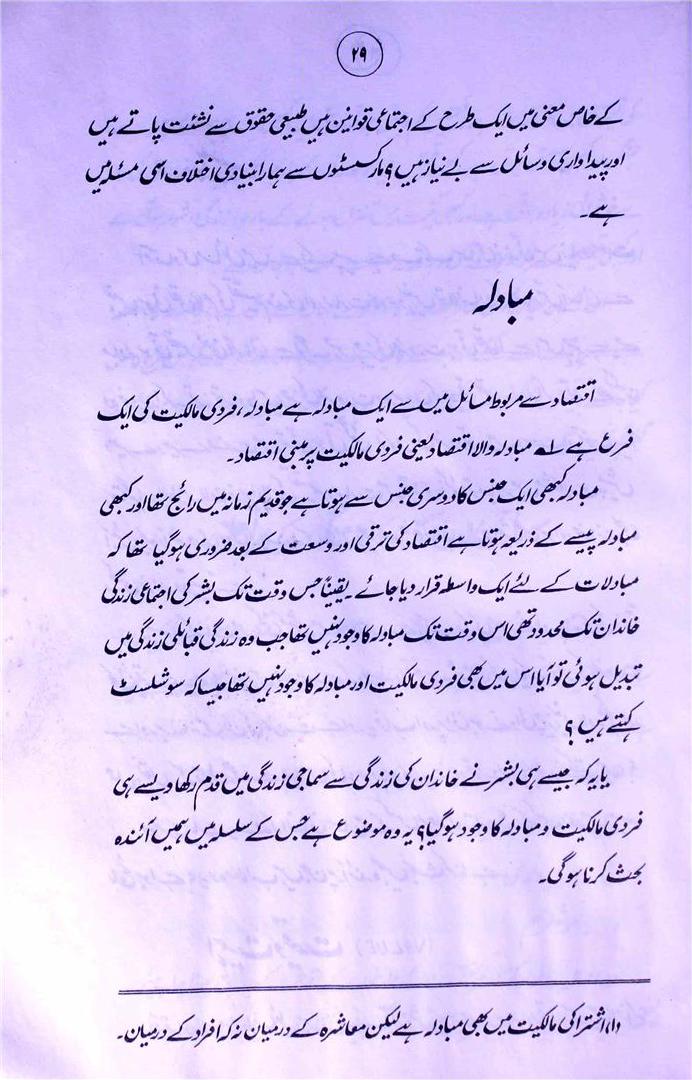 ۲۹
کے خاص معنی میں ایک طرح کے اجتماعی قوانین ہیں طبیعی حقوق سے نشئت پاتے ہیں
اور پیداواری وسائل سے بے نیاز ہیں؟ مارکسسٹوں سے ہمارا بنیادی اختلاف اسی مسئلہ میں
ہے۔
مبادلہ
اقتصاد سے مربوط مسائل میں سے ایک مبادلہ ہے مبادلہ، فردی مالکیت کی ایک
فرع ہے ۱؎ مبادلہ والا اقتصاد یعنی فردی مالکیت پر مبنی اقتصاد۔
مبادلہ کبھی ایک جنس کا دوسری جنس سے ہوتا ہے جو قدیم زمانہ میں رائج تھا اور کبھی
مبادلہ پیسے کے ذریعہ ہوتا ہے اقتصاد کی ترقی اور وسعت کے بعد ضروری ہوگیا تھا کہ
مبادلات کے لئے ایک واسطہ قرار دیا جائے۔ یقیناً جس وقت تک بشر کی اجتماعی زندگی
خاندان تک محدود تھی اس وقت تک مبادلہ کا وجود نہیں تھا جب وہ زندگی قبائلی زندگی میں
تبدیل ہوئی تو آیا اس میں بھی فردی مالکیت اور مبادلہ کا وجود نہیں تھا جیسا کہ سوشلسٹ
کہتے ہیں؟
یا یہ کہ جیسے ہی بشر نے خاندان کی زندگی سے سماجی زندگی میں قدم رکھا ویسے ہی
فردی مالکیت و مبادلہ کا وجود ہوگیا؟ یہ وہ موضوع ہے جس کے سلسلہ میں ہمیں آئندہ
بحث کرنا ہوگی۔
(۱) اشتراکی مالکیت میں بھی مبادلہ ہے لیکن معاشرہ کے درمیان نہ کہ افراد کے درمیان۔